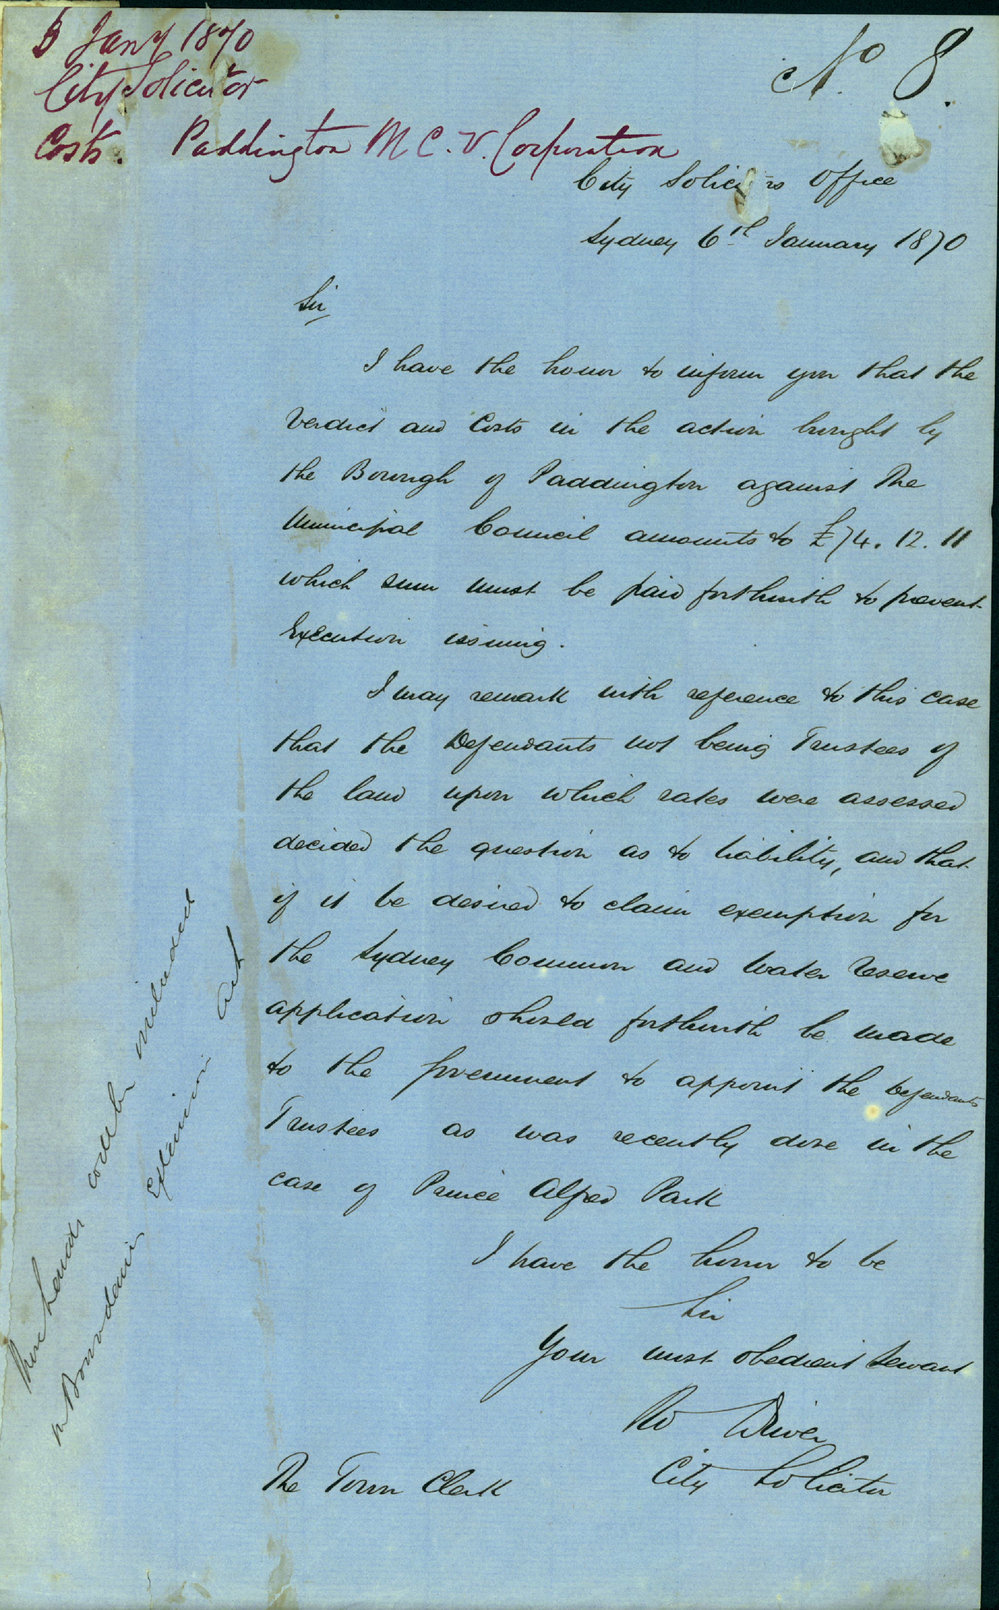 5 Jany 1870
City Solicitor
Costs. Paddington M C. v. Corporation
No 8.
City Solicitors Office
Sydney 6th January 1870
Sir
I have the honor to inform you that the
Verdict and Costs in the action brought by
the Borough of Paddington against The
Municipal Council amounts to £74. 12. 11
which sum must be paid forthwith to prevent
Execution issuing.
I may remark with reference to this case
that the Defendants not being Trustees of
the land upon which rates were assessed
decided the question as to liability, and that
if it be desired to claim exemption for
the Sydney Common and Water Reserve
application should forthwith be made
to the Government to appoint the Defendants
Trustees as was recently done in the
case of Prince Alfred Park
I have the honor to be
Sir
Your most obedient Servant
Rd Driver
City Solicitor
The Town Clerk
These lands could be included
in Boundaries Extension Act